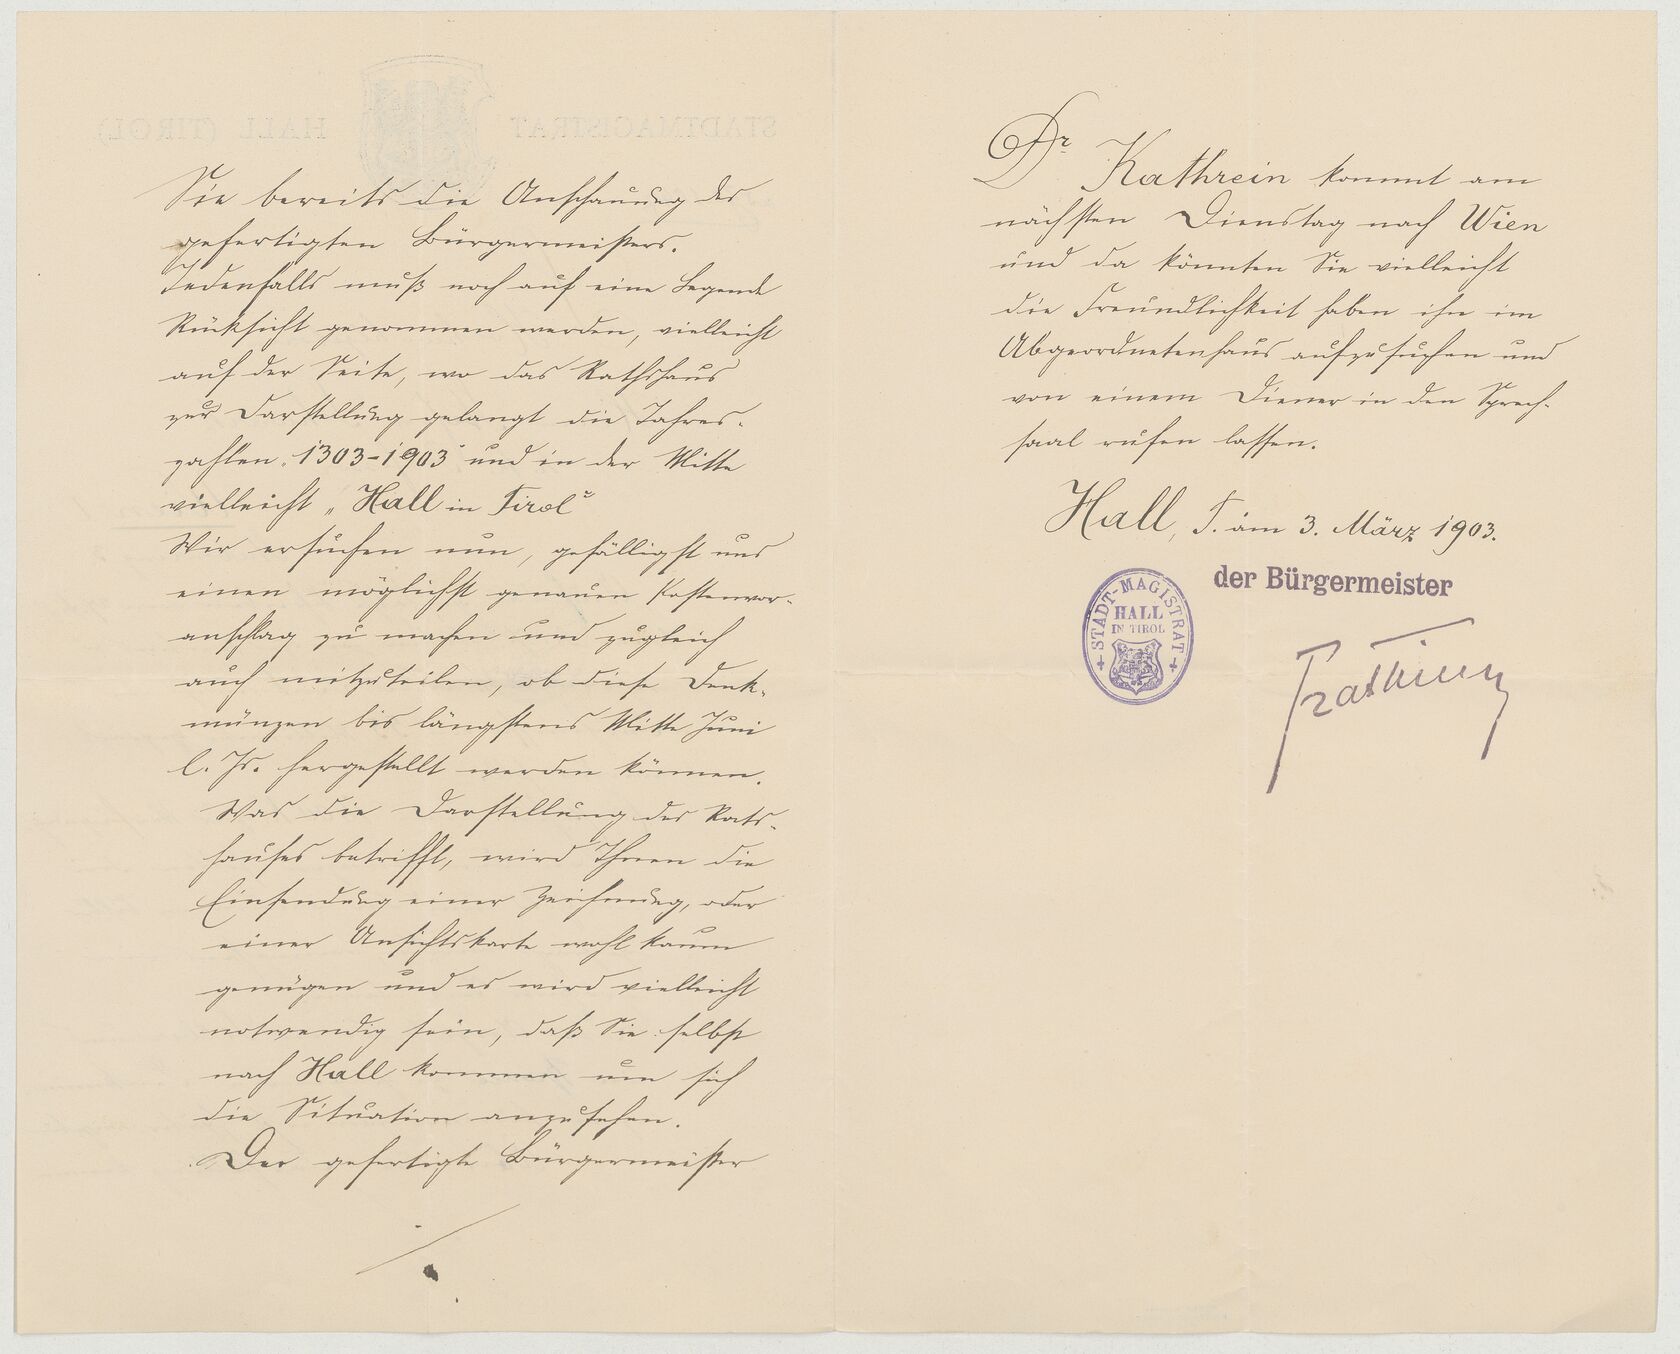 STADTMAGISTRAT HALL (TIROL)
Sie bereits die Anschauung des
gefertigten Bürgermeisters.
Jedenfalls muß noch auf eine Legende
Rücksicht genommen werden, vielleicht
auf der Seite, wo das Rathshaus
zur Darstellung gelangt die Jahres-
zahlen „1303-1903" und in der Mitte
vielleicht „Hall in Tirol"
Wir ersuchen nun, gefälligst uns
einen möglichst genauen Kostenvor-
anschlag zu machen und zugleich
auch mitzuteilen, ob diese Denk-
münzen bis längstens Mitte Juni
l. Js. hergestellt werden können.
Was die Darstellung des Rats-
hauses betrifft, wird Ihnen die
Einsendung einer Zeichnung, oder
einer Ansichtskarte wohl kaum
genügen und es wird vielleicht
notwendig sein, daß Sie selbst
nach Hall kommen um sich
die Situation anzusehen.
Der gefertigte Bürgermeister
Dr Kathrein kommt am
nächsten Dienstag nach Wien
und da könnten Sie vielleicht
die Freundlichkeit haben ihn im
Abgeordnetenhaus aufzusuchen und
von einem Diener in den Sprech-
saal rufen lassen.
Hall, T. am 3. März 1903.
der Bürgermeister
STADT-MAGISTRAT
HALL
IN TIROL